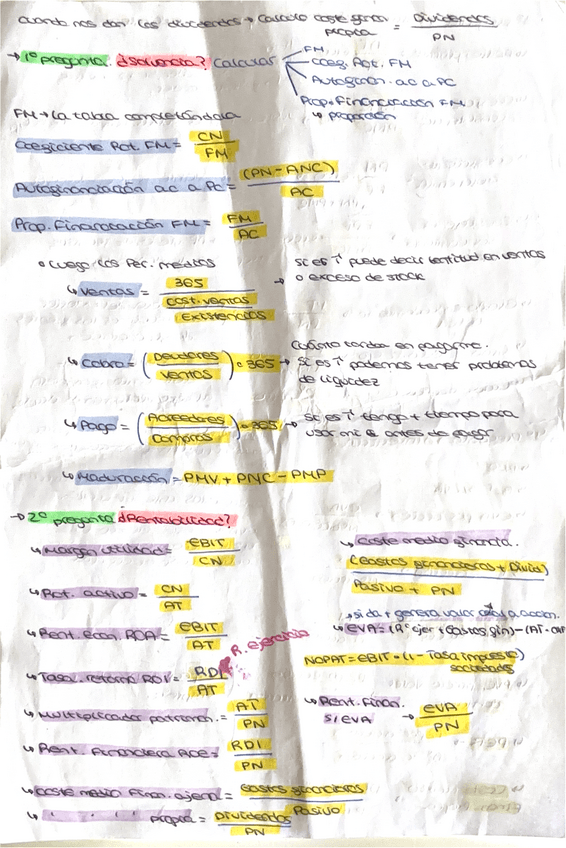 cuando nos dan los dividendos → Calculo coste financ. propio = Dividendos / PN
→ 1ª pregunta ¿Solvencia? Calcular
FM
Coef. Rot. FM
Autofinan. ac a PC
Prop. Financiación FM
↳ proporción
FM → La tabla completándola
Coeficiente Rot. FM = CN / FM
Autofinanciación ac a PC = (PN - ANC) / AC
Prop. Financiación FM = FM / AC
• Luego los Per. medios
↳ Ventas = 365 / (Cost. ventas / Existencias)
→ Si es ↑ puede decir lentitud en ventas
o exceso de stock
↳ Cobro = (Deudores / Ventas) • 365 →
Cuánto tardan en pagarme.
Si es ↑ podemos tener problemas
de liquidez
↳ Pago = (Acreedores / Compras) • 365 →
Si es ↑ tengo + tiempo para
usar mi antes de pagar
↳ Maduración = PMV + PNC - PMP
→ 2ª pregunta ¿Rentabilidad?
↳ Margen utilidad = EBIT / CN
↳ Rot. activo = CN / AT
↳ Rent. econ. ROA = EBIT / AT
R. ejercicio
↳ Tasa retorno ROI = RDI / AT
↳ Multiplicador patrimon. = AT / PN
↳ Rent. Financiera ROE = RDI / PN
↳ Coste medio Finan. ajena = Gastos financieros / Pasivo
↳ " " " propia = Dividendos / PN
↳ Coste medio financia.
(Gastos financieros + Divid) / Pasivo + PN
→ si da + genera valor a accion.
↳ EVA = (Rº ejer + Gastos fin) - (AT •
NOPAT = EBIT • (1 - Tasa impuesto)
sociedades
↳ Rent. Finan.
si EVA → EVA / PN